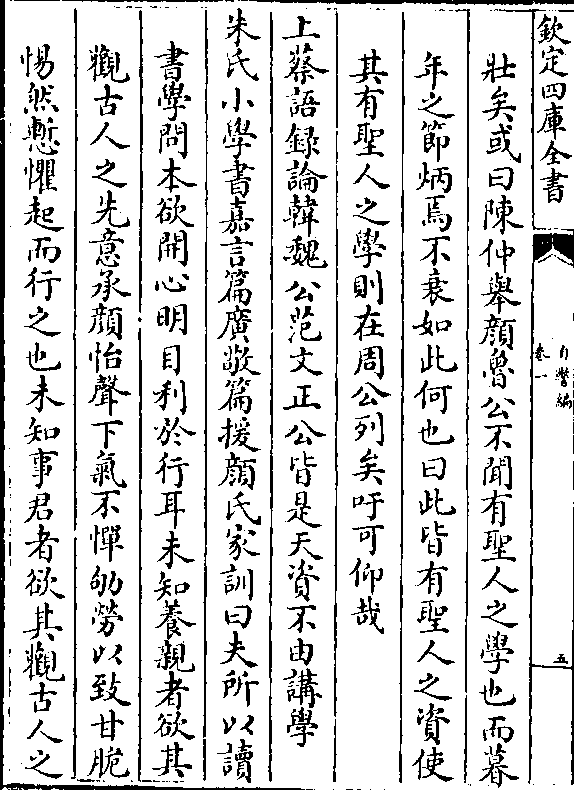 欽定四庫全書
自警編
卷一
五
壯矣或曰陳仲舉顔魯公不聞有聖人之學也而暮
年之節炳焉不衰如此何也曰此皆有聖人之資使
其有聖人之學則在周公列矣吁可仰哉
上蔡語録論韓魏公范文正公皆是天資不由講學
朱氏小學書嘉言篇廣敬篇援顔氏家訓曰夫所以讀
書學問本欲開心明目利於行耳未知養親者欲其
觀古人之先意承顔怡聲下氣不憚劬勞以致甘脆
惕然慙懼起而行之也未知事君者欲其觀古人之